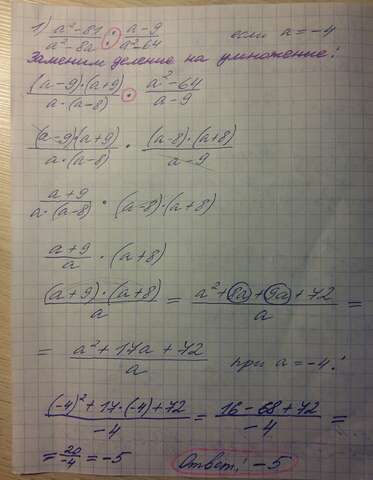 1) (a²-81)/(a²-8a) : (a-9)/(a²-64) если a=-4
Заменим деление на умножение:
((a-9)·(a+9))/(a·(a-8)) · (a²-64)/(a-9)
((a-9)·(a+9))/(a·(a-8)) · ((a-8)·(a+8))/(a-9)
(a+9)/(a·(a-8)) · (a-8)·(a+8)
(a+9)/a · (a+8)
((a+9)·(a+8))/a = (a²+8a+9a+72)/a =
= (a²+17a+72)/a при a=-4:
((-4)²+17·(-4)+72)/(-4) = (16-68+72)/(-4) =
= 20/(-4) = -5 Ответ: -5